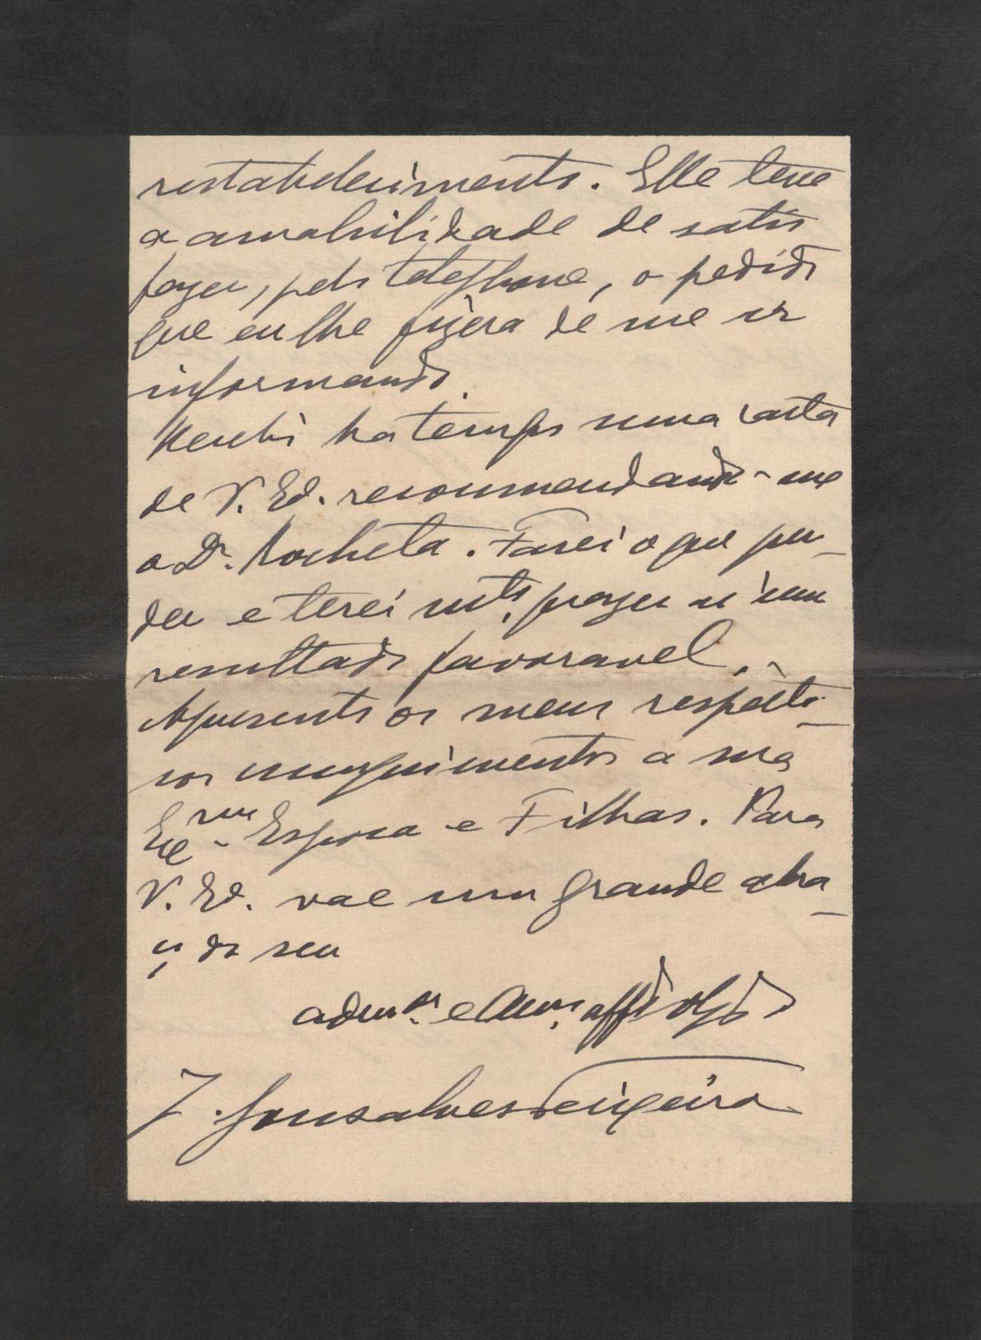 restabelecimento. Elle teve
a amabilidade de satis
fazer, pelo telephone, o pedido
que eu lhe fizera de me ir
informando.
Recebi ha tempos uma carta
de V. Ex. recommendando-me
o Dr. Rocheta. Farei o que pu-
der e terei mto. prazer n'um
resultado favoravel.
Apresento os meus respeito-
sos cumprimentos a sua
Exma. Esposa e Filhas. Para
V. Ex. vae um grande abra-
ço do seu
admor. e Amo. affo
J. Gonsalves Teixeira